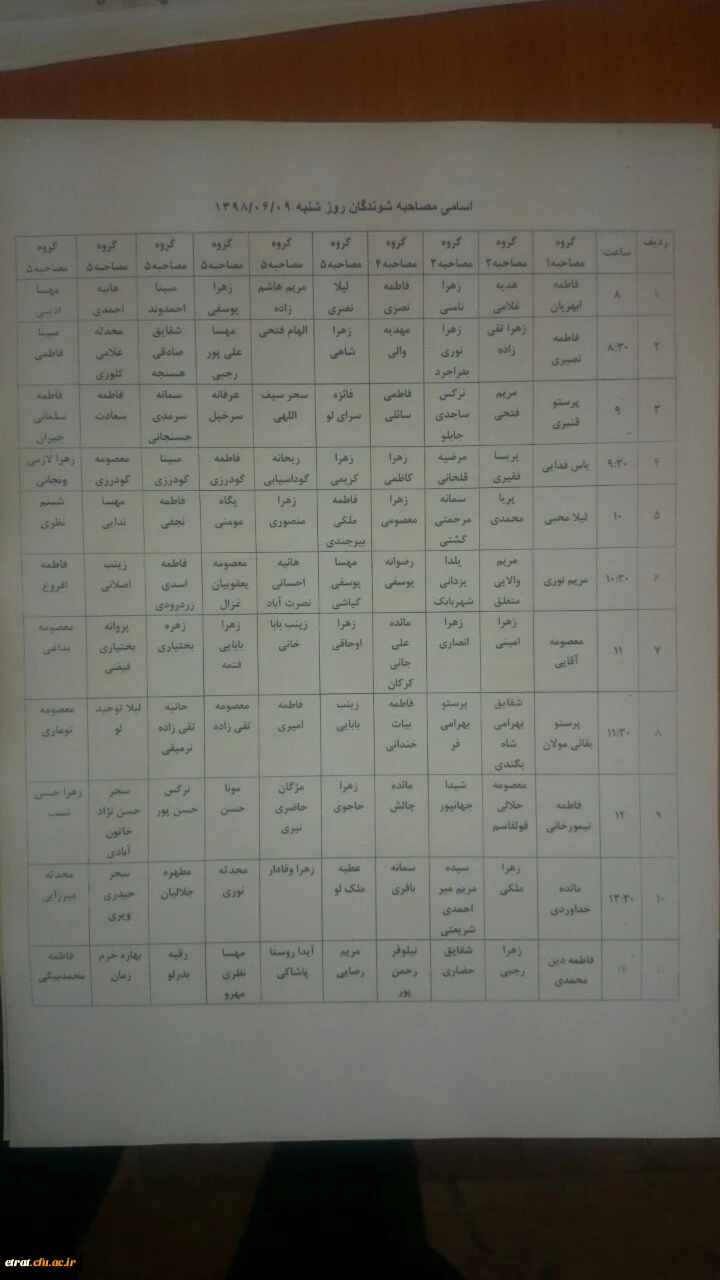 اسامی مصاحبه شوندگان روز شنبه ۱۳۹۸/۰۶/۰۹
ردیف ساعت گروه مصاحبه۱ گروه مصاحبه۲ گروه مصاحبه۳ گروه مصاحبه۴ گروه مصاحبه۵ گروه مصاحبه۵ گروه مصاحبه۵ گروه مصاحبه۵ گروه مصاحبه۵ گروه مصاحبه۵
۱ ۸ فاطمه ابهریان هدیه غلامی زهرا نامنی فاطمه نصری لیلا نصری مریم هاشم زاده زهرا یوسفی مبینا احمدوند هانیه احمدی مهسا ادیبی
۲ ۸:۳۰ فاطمه نصیری زهرا تقی زاده زهرا نوری بفراجرد مهدیه والی زهرا شاهی الهام فتحی مهسا علی پور رجبی شقایق صادقی هسنجه محدثه غلامی کلوری مبینا فاطمی
۳ ۹ پرستو قنبری مریم فتحی نرگس ساجدی جابلو فاطمی سائلی فائزه سرای لو سحر سیف اللهی عرفانه سرخیل سمانه سرمدی حسنجانی فاطمه سعادت فاطمه سلمانی جیران
۴ ۹:۳۰ یاس فدایی پریسا فقیری مرضیه قلخانی زهرا کاظمی زهرا کریمی ریحانه گوداسیابی فاطمه گودرزی مبینا گودرزی معصومه گودرزی زهرا لازمی ونجانی
۵ ۱۰ لیلا محبی پریا محمدی سمانه مرحمتی گشتی زهرا معصومی فاطمه ملکی بیرجندی زهرا منصوری پگاه مومنی فاطمه نجفی مهسا ندایی شبنم نظری
۶ ۱۰:۳۰ مریم نوری مریم والایی متعلق یلدا یزدانی شهربابک رضوانه یوسفی مهسا یوسفی گیاشی هانیه احسانی نصرت آباد معصومه یعقوبیان غزال فاطمه اسدی زردرودی زینب اصلانی فاطمه افروغ
۷ ۱۱ معصومه آقایی زهرا امینی زهرا انصاری مائده علی جانی کرکان زهرا اوجاقی زینب بابا خانی زهرا بابایی فتمه زهره بختیاری پروانه بختیاری فیضی معصومه بداغی
۸ ۱۱:۳۰ پرستو بقائی مولان شقایق بهرامی شاه بگندی پرستو بهرامی فر فاطمه بیات خندانی زینب بابایی فاطمه امیری معصومه تقی زاده حانیه تقی زاده نرمیقی لیلا توحید لو معصومه توماری
۹ ۱۲ فاطمه تیمورخانی معصومه جلالی قولقاسم شیدا جهانپور مائده چالش زهرا حاجوی مژگان حاضری نیری مونا حسن نرگس حسن پور سحر حسن نژاد خاتون آبادی زهرا حسن نسب
۱۰ ۱۳:۳۰ مائده خداوردی زهرا ملکی سیده مریم میر احمدی شریعتی سمانه باقری عطیه ملک لو زهرا وفادار محدثه نوری مطهره جلالیان سحر حیدری ویری محدثه میرزایی
۱۱ ۱۴ فاطمه دین محمدی زهرا رجبی شقایق حصاری نیلوفر رحمن پور مریم رضایی آیدا روستا پاشاکی مهسا نظری مهرو رقیه بدرلو بهاره خرم زمان فاطمه محمدبیکی
etrat.cfu.ac.ir